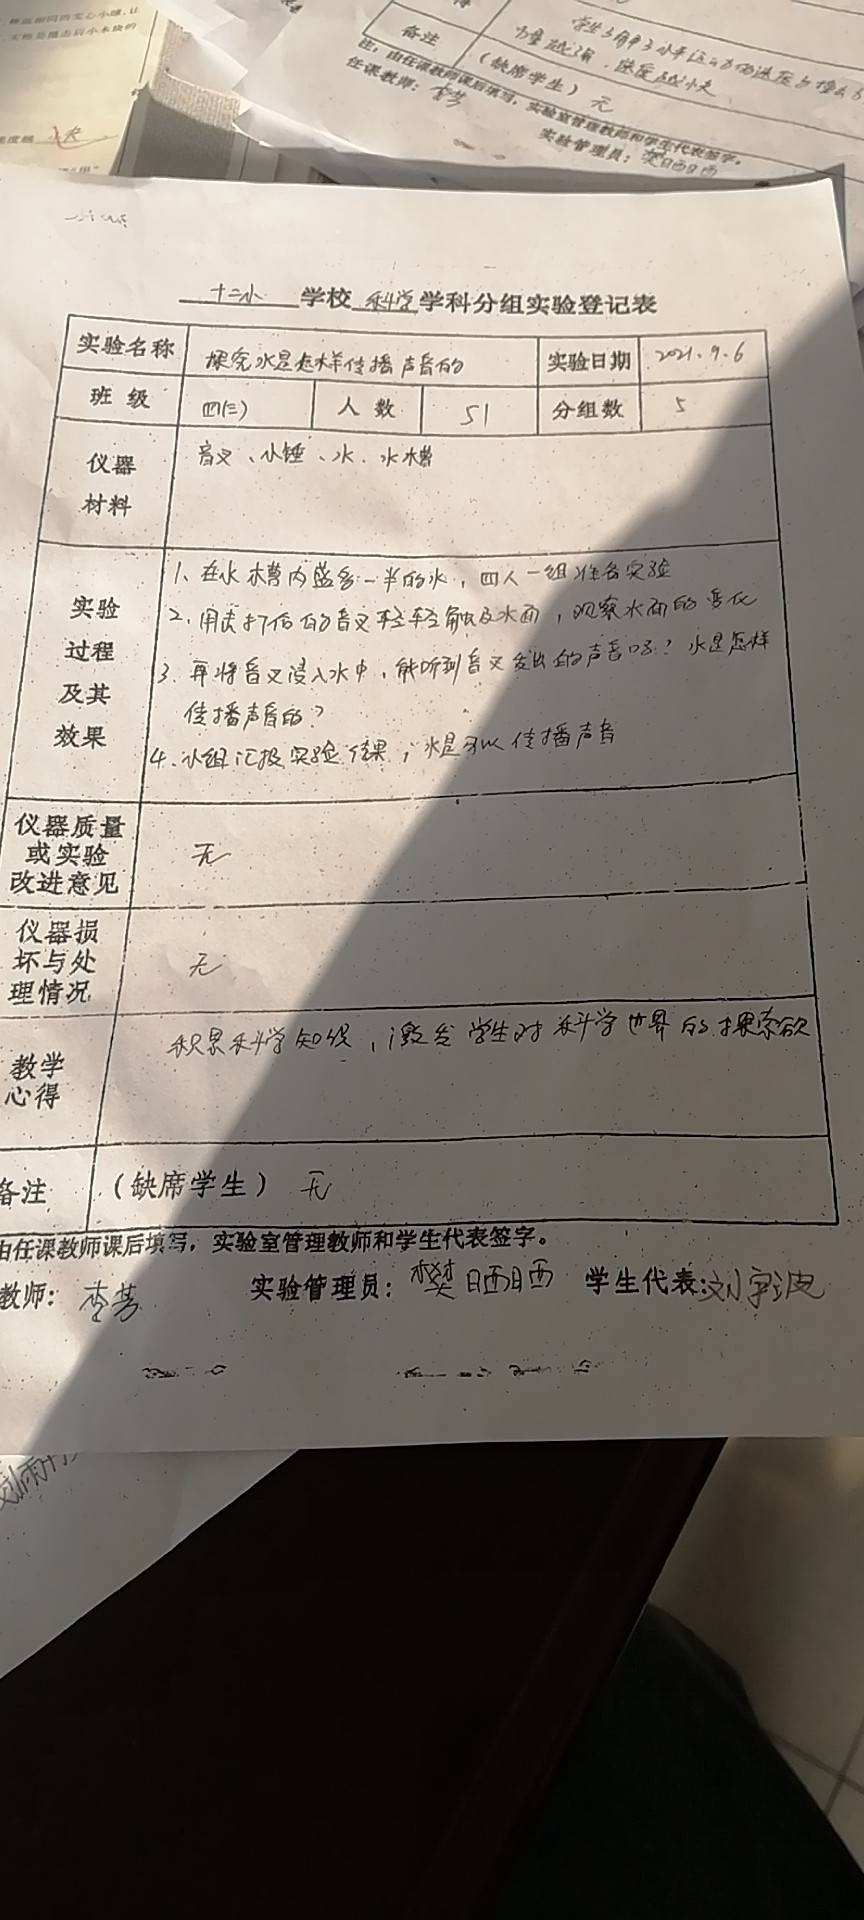 备注
(缺席学生) 无
注：由任课教师课后填写，实验室管理教师和学生代表签字。
任课教师：李芳
实验管理员：樊晒晒
十二小 学校 科学 学科分组实验登记表
实验名称 探究水是怎样传播声音的 实验日期 2021.9.6
班级 四(三) 人数 51 分组数 5
仪器
材料
音叉、小锤、水、水槽
实验
过程
及其
效果
1、在水槽内盛多一半的水，四人一组准备实验
2、用击打后的音叉轻轻触及水面，观察水面的变化
3、再将音叉浸入水中，能听到音叉发出的声音吗？水是怎样
传播声音的？
4、小组汇报实验结果，水是可以传播声音
仪器质量
或实验
改进意见
无
仪器损
坏与处
理情况
无
教学
心得
积累科学知识，激发学生对科学世界的探索欲
备注 (缺席学生) 无
由任课教师课后填写，实验室管理教师和学生代表签字。
教师：李芳 实验管理员：樊晒晒 学生代表：刘宇波